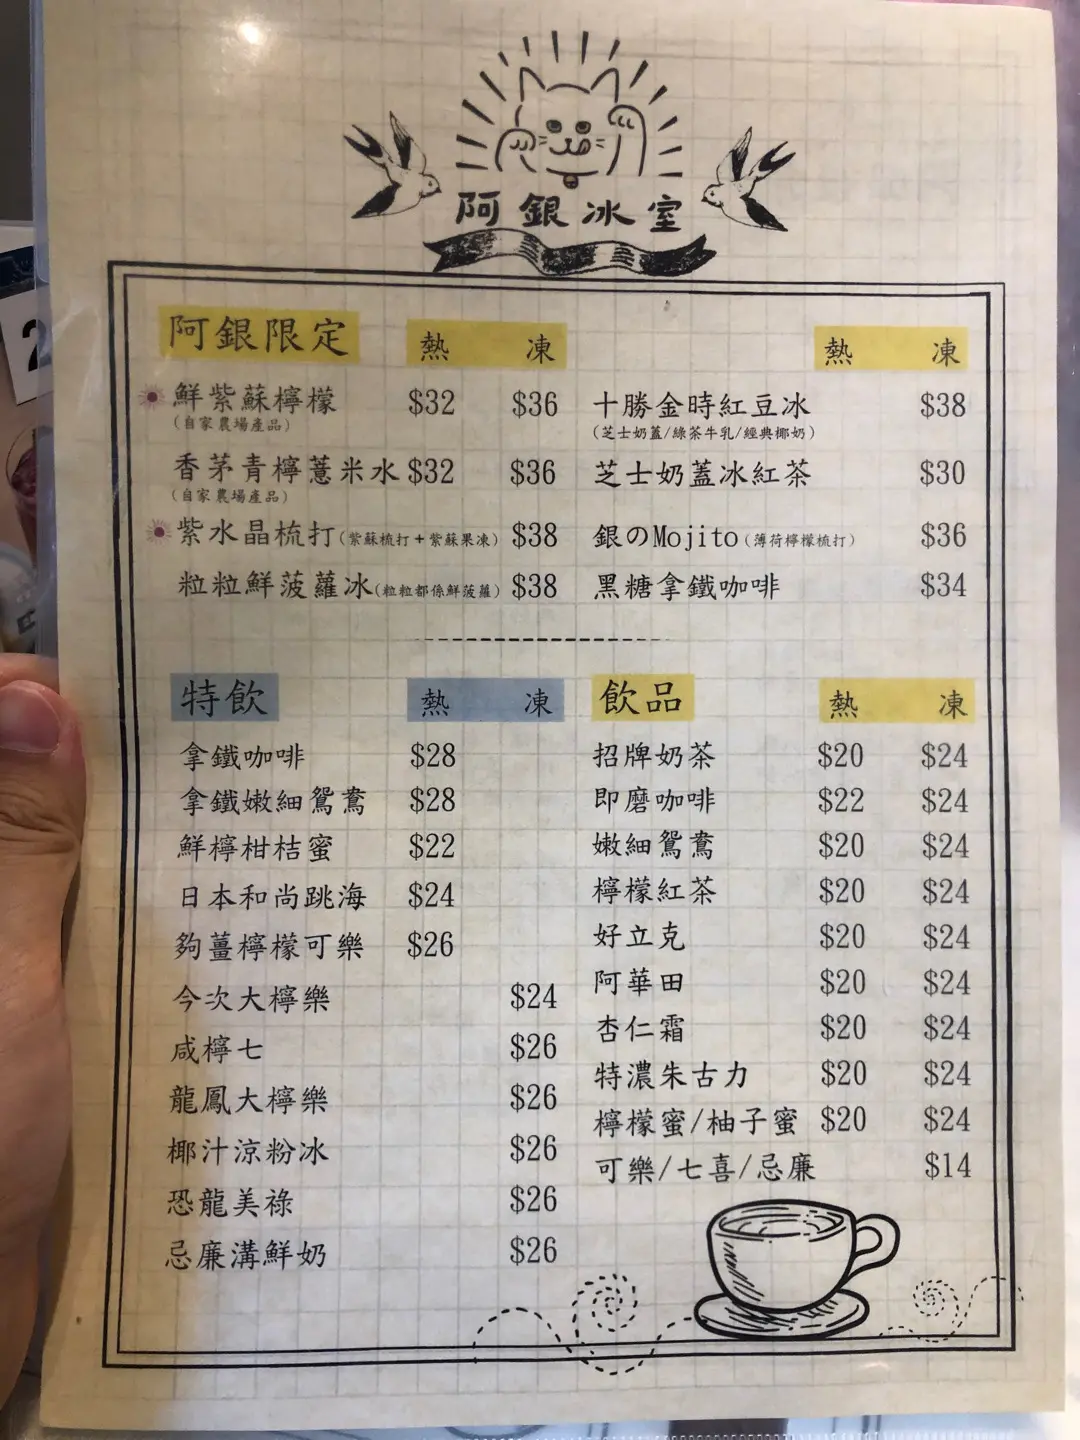 阿銀冰室
阿銀限定 熱 凍
鮮紫蘇檸檬 $32 $36
(自家農場產品)
香茅青檸薏米水 $32 $36
(自家農場產品)
紫水晶梳打(紫蘇梳打+紫蘇果凍) $38
粒粒鮮菠蘿冰(粒粒都係鮮菠蘿) $38
熱 凍
十勝金時紅豆冰 $38
(芝士奶蓋/綠茶牛乳/經典椰奶)
芝士奶蓋冰紅茶 $30
銀のMojito(薄荷檸檬梳打) $36
黑糖拿鐵咖啡 $34
特飲 熱 凍
拿鐵咖啡 $28
拿鐵嫩細鴛鴦 $28
鮮檸柑桔蜜 $22
日本和尚跳海 $24
夠薑檸檬可樂 $26
今次大檸樂 $24
咸檸七 $26
龍鳳大檸樂 $26
椰汁涼粉冰 $26
恐龍美祿 $26
忌廉溝鮮奶 $26
飲品 熱 凍
招牌奶茶 $20 $24
即磨咖啡 $22 $24
嫩細鴛鴦 $20 $24
檸檬紅茶 $20 $24
好立克 $20 $24
阿華田 $20 $24
杏仁霜 $20 $24
特濃朱古力 $20 $24
檸檬蜜/柚子蜜 $20 $24
可樂/七喜/忌廉 $14
2